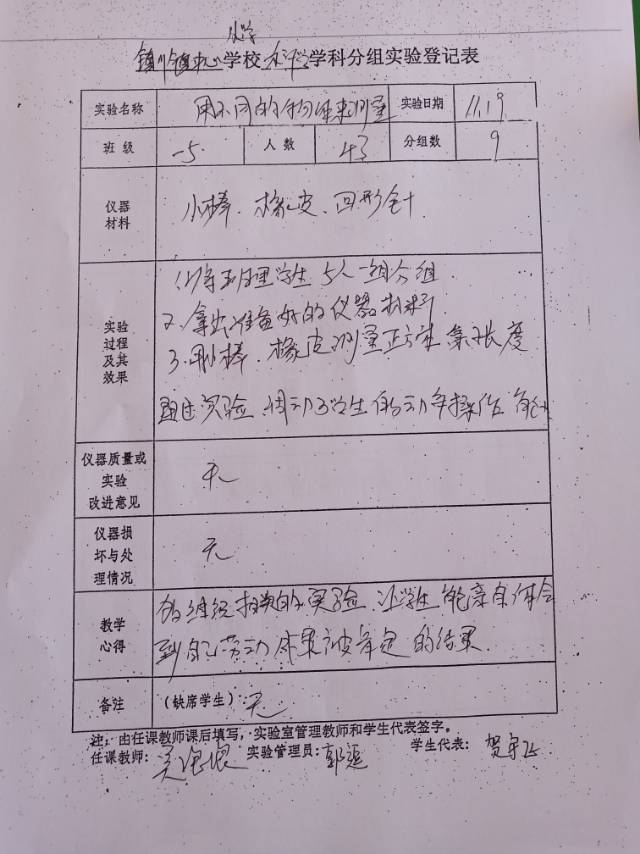 小学
镇川镇中心学校科学学科分组实验登记表
实验名称 用不同的物体来测量 实验日期 11.19
班 级 一5 人 数 43 分组数 9
仪器材料 小棒、橡皮、回形针
实验过程及其效果
(1)将班里学生5人一组分组
2、拿出准备好的仪器
3、用小棒、橡皮测量正方体 长度
通过实验 调动了学生的动手操作能力
仪器质量或实验改进意见 无
仪器损坏与处理情况 无
教学心得
的实验,让学生能亲自体会
到自己劳动成果被肯定的结果
备注 (缺席学生):无
注:由任课教师课后填写,实验室管理教师和学生代表签字。
任课教师: 实验管理员: 学生代表: